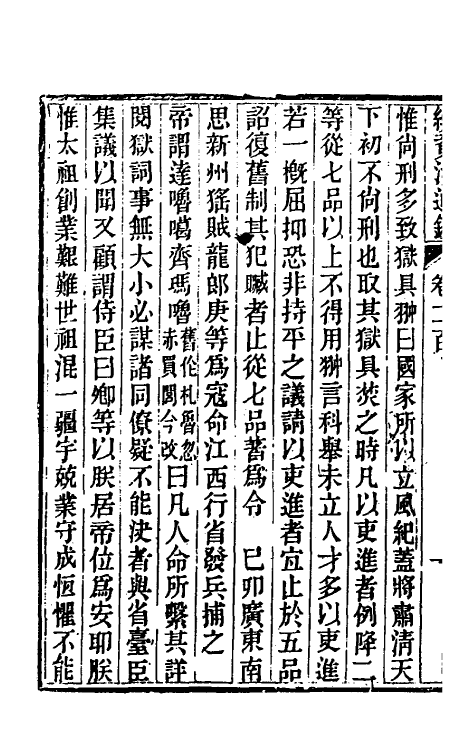 續資治通鑑 卷二百
惟尙刑多致獄具翀曰國家所以立風紀蓋將肅淸天
下初不尙刑也取其獄具焚之時凡以吏進者例降二
等從七品以上不得用翀言科舉未立人才多以吏進
若一槪屈抑恐非持平之議請以吏進者宜止於五品
詔復舊制其犯贓者止從七品著爲令 己卯廣東南
思新州猺賊龍郎庚等爲寇命江西行省發兵捕之
帝謂達嚕噶齊瑪嚕舊伦札魯忽赤買閭今改曰凡人命所繫其詳
閱獄詞事無大小必謀諸同僚疑不能決者與省臺臣
集議以聞又顧謂侍臣曰卿等以朕居帝位爲安耶朕
惟太祖創業艱難世祖混一疆宇兢業守成恆懼不能